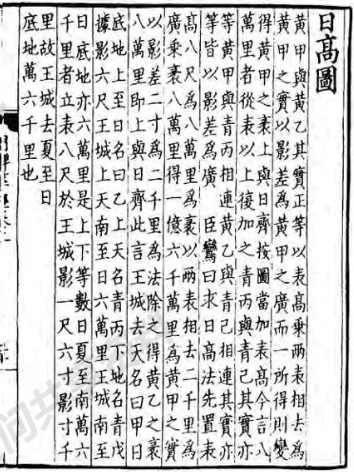 日高圖
黃甲與黃乙其實正等以表高乗兩表相去爲
黃甲之實以影差爲黃甲之廣而一所得則變
得黃甲之袤上與日齊按圖當加表高今言八
萬里者從表以上復加之青丙與青己其實亦
等黃甲與青丙相連黃乙與青己相連其實亦
等皆以影差爲廣　臣鸞曰求日高法先置表
髙八尺爲八萬里爲袤以兩表相去二千里爲
廣乘袤八萬里得一億六千萬里爲黃甲之實
以影差二寸爲二千里爲法除之得黃乙之袤
八萬里即上與日齊此言王城去天名曰甲日
底地上至日名曰乙上天名青丙下地名青戊
據影六尺王城上天南至日六萬里王城南至
日底地亦六萬里是上下等數日夏至南萬六
千里者立表八尺於王城影一尺六寸影寸千
里故王城去夏至日
底地萬六千里也